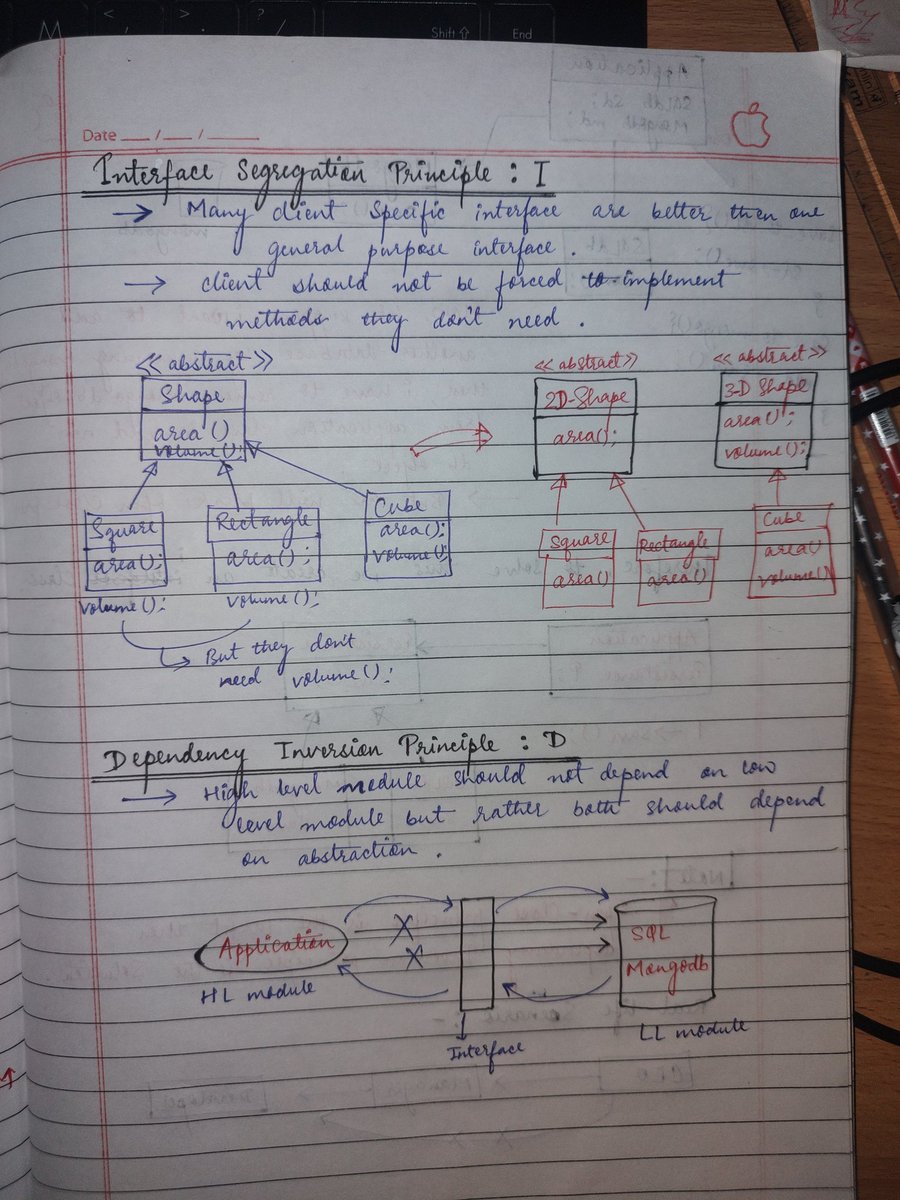 M
<
>
?
/
Shift ⇧
End
Date ___ / ___ / _____
Interface Segregation Principle : I
→ Many client specific interface are better then one
general purpose interface.
→ client should not be forced to implement
methods they don't need.
<< abstract >>
Shape
area ()
volume();
Square
area();
volume();
Rectangle
area();
volume();
Cube
area();
volume();
But they don't
need volume();
<< abstract >>
2D-Shape
area();
<< abstract >>
3-D Shape
area();
volume();
Square
area()
Rectangle
area()
Cube
area()
volume()
Dependency Inversion Principle : D
→ High level module should not depend on low
level module but rather both should depend
on abstraction.
Application
HL module
X
X
Interface
SQL
Mongodb
LL module